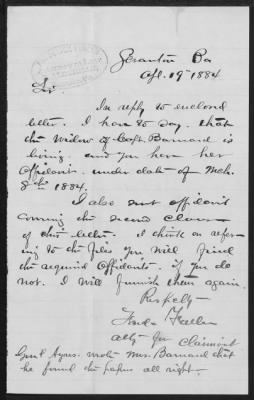 Scranton Pa
Apl. 19th 1884
Sir
In reply to enclosed
letter. I have to say, that
the Widow of Capt. Barnard is
living. and you have her
Affidavit. under date of Mch.
8th 1884.
I also sent affidavit
covering the second clause
of this letter. I think on refer-
ing to the files you will find
the required Affidavits. if you do
not. I will furnish them again.
Respectly
atty for Claimant
Genl Agnus. wrote Mrs. Barnard that
he found the papers all right.